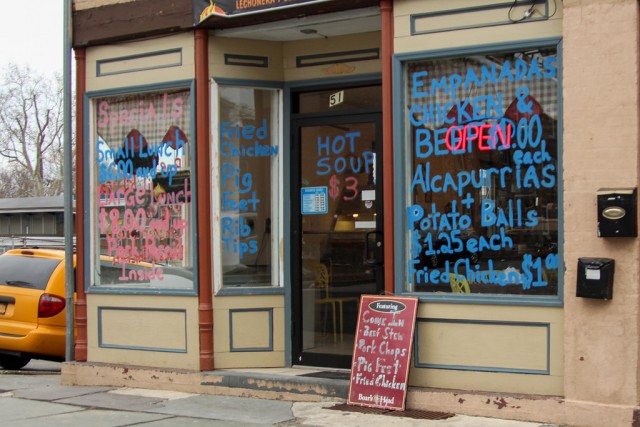 LECHONERA
51
Specials
Small Lunch
$6.00 and up
Large Lunch
$8.00 and up
Inside
Fried
Chicken
Pig
Feet
Rib
Tips
HOT
SOUP
$3
EMPANADAS
CHICKEN &
BEEF .00
OPEN
each
ALCAPURRIAS
+
POTATO BALLS
$1.25 each
Fried Chicken $1.00
Featuring
Come In
Beef Stew
Pork Chops
Pig Feet
Fried Chicken
Boar's Head